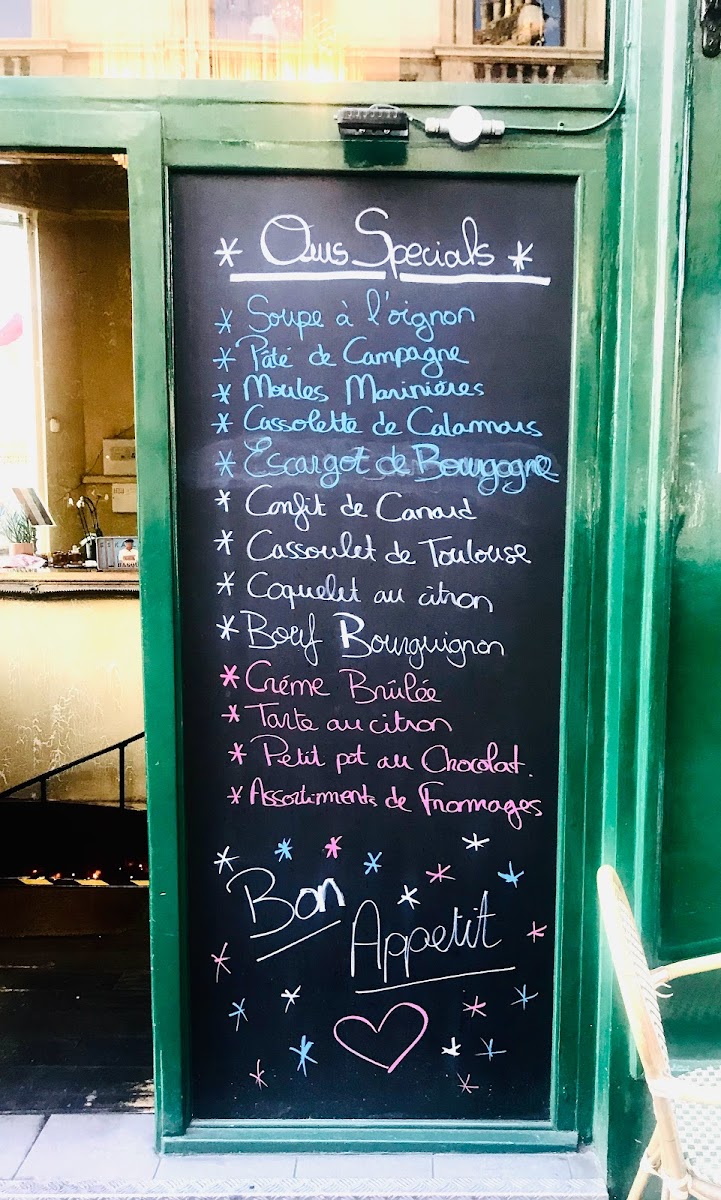 * Ours Specials *
* Soupe à l'oignon
* Pâté de Campagne
* Moules Marinières
* Cassolette de Calamars
* Escargot de Bourgogne
* Confit de Canard
* Cassoulet de Toulouse
* Coquelet au citron
* Boeuf Bourguignon
* Créme Brûlée
* Tarte au citron
* Petit pot au Chocolat.
* Assortiments de Fromages
Bon
Appetit